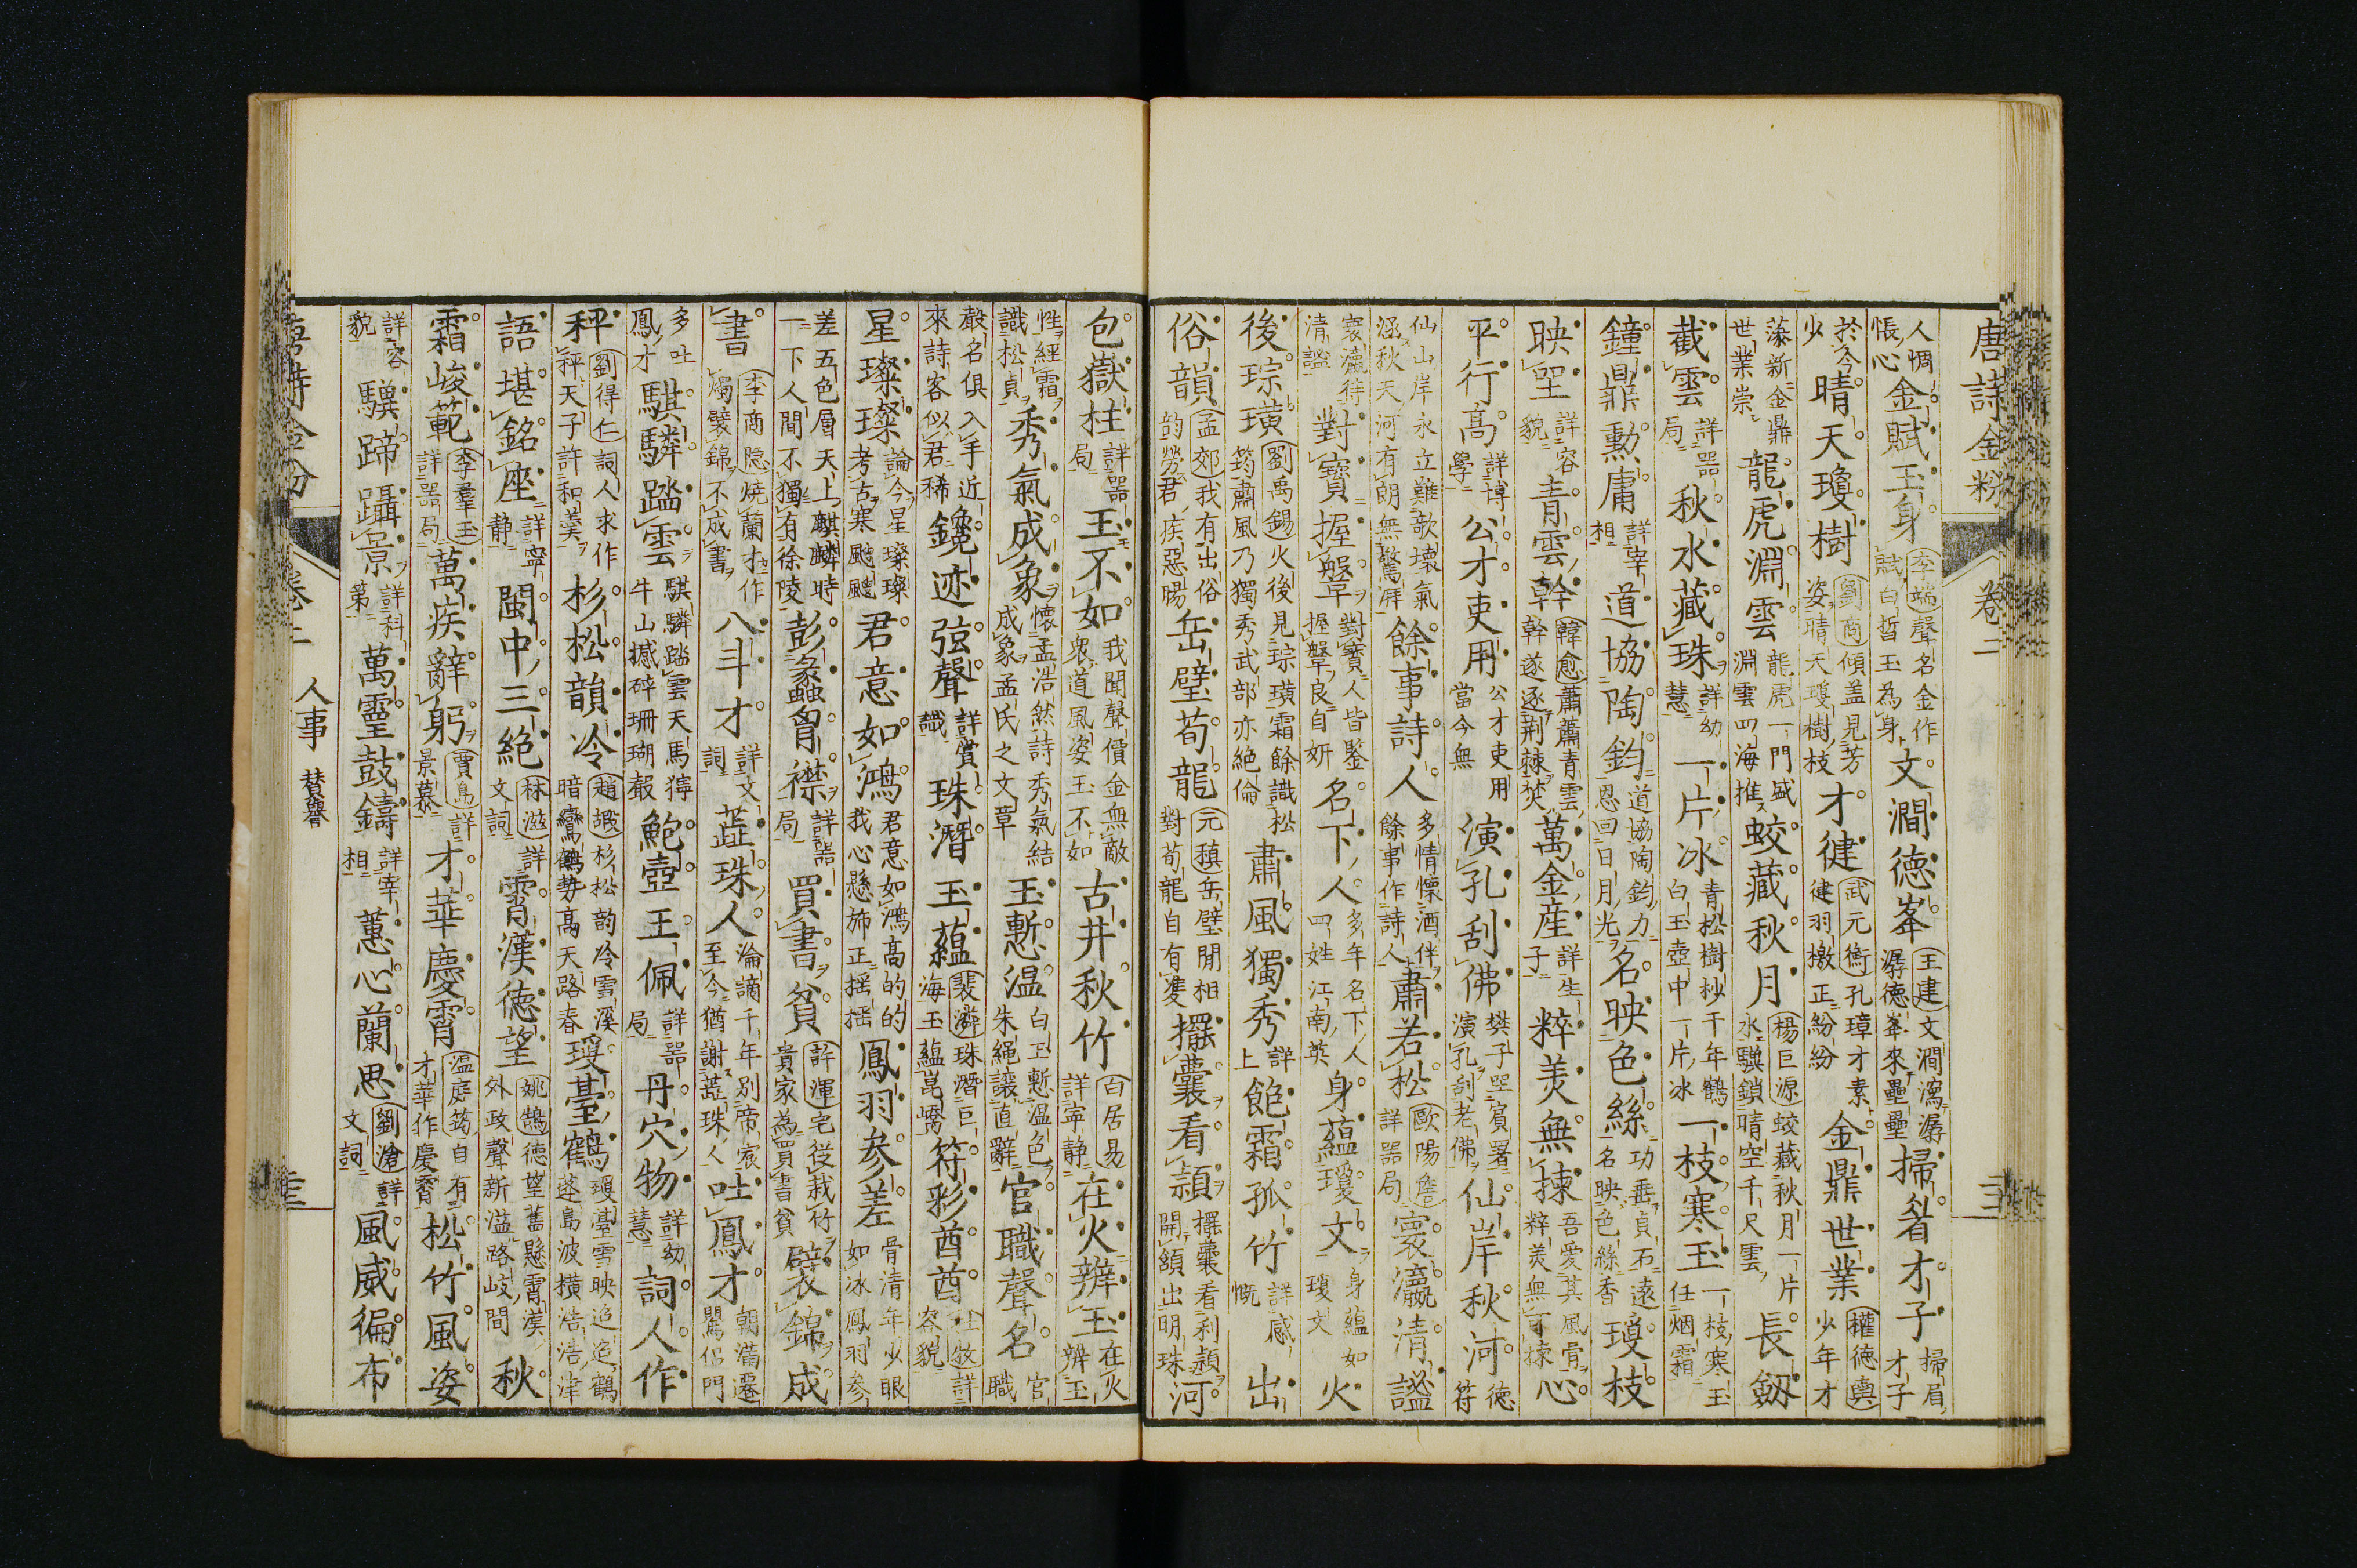 唐詩金粉 卷二
人惆悵心金賦玉身李端聲名金作賦白皙玉為身文澗德峯王建文澗瀉潺潺德峯來壘壘掃眉才子掃眉才子
於今少晴天瓊樹劉商傾盖見芳姿晴天瓊樹枝才健武元衡孔璋才素健羽檄正紛紛金鼎世業權德輿少年才
藻新金鼎世業崇龍虎淵雲龍虎一門盛淵雲四海推蛟藏秋月楊巨源蛟藏秋月一片水驥鎖晴空千尺雲長劔
截雲詳器局秋水藏珠詳幼慧一片冰青松樹杪千年鶴白玉壺中一片冰一枝寒玉一枝寒玉任烟霜
鐘鼎勲庸詳宰相道協陶鈞道協陶鈞力恩回日月光名映色絲功垂貞石遠名映色絲香瓊枝
映堊詳容貌青雲幹韓愈蕭蕭青雲幹遂逐荆棘焚萬金産詳生子粹美無揀吾愛其風骨粹美無可揀心
平行高詳博學公才吏用公才吏用當今無演孔刮佛樊子坐賓署演孔刮老佛仙岸秋河德符
仙山岸永立難欹壊氣涵秋天河有朗無驚湃餘事詩人多情懷酒伴餘事作詩人肅若松歐陽詹詳器局寰瀛清謐
寰瀛待清謐對寳握鞶對寳人皆鑒握鞶良自妍名下人多年名下人四姓江南英身蘊瓊文身蘊如瓊文火
後琮璜劉禹錫火後見琮璜霜餘識松筠肅風乃獨秀武部亦絕倫肅風獨秀詳上飽霜孤竹詳感慨出
俗韻孟郊我有出俗韵勞君疾惡腸岳璧荀龍元稹岳璧閒相對荀龍自有雙擺囊看頴擺囊看利頴開頷出明珠河
包嶽柱詳器局玉不如我聞聲價金無敵衆道風姿玉不如古井秋竹白居易詳寧静在火辨玉在火辨玉
性經霜識松貞秀氣成象懷孟浩然詩秀氣結成象孟氏之文章玉慙温白玉慙温色朱繩讓直辭官職聲名官職
聲名俱入手近來詩客似君稀鏡迹弦聲詳賞識珠潛玉蘊裴潾珠潛巨海玉蘊嵩嶠符彩酋酋杜牧詳容貌
星璨璨論今星璨璨考古寒颼颼君意如鴻君意如鴻高的的我心懸斾正揺揺鳳羽參差骨清年少眼如冰鳳羽參
差五色層天上麒麟時一下人間不獨有徐陵彭蠡胷襟詳器局買書貧許渾宅從栽竹貴家為買書貧襞錦成
書李商隐焼蘭才作燭襞錦不成書八斗才詳文詞蕋珠人淪謫千年別帝宸至今猶謝蕋珠人吐鳳才朝滿遷鸎侶門
多吐鳳才騏驎踏雲騏驎踏雲天馬獰牛山撼碎珊瑚聲鮑壺王佩詳器局丹穴物詳幼慧詞人作
秤劉得仁詞人求作秤天子許和羹杉松韻冷趙嘏杉松韵冷雪溪暗鸞鶴勢高天路春瑶臺鶴瑶臺雪映迢迢鶴蓬島波横浩浩津
語堪銘座詳寧静閩中三絶林滋詳文詞霄漢德望姚鵠德望舊懸霄漢外政聲新溢路岐間秋
霜峻範李羣玉詳器局萬疾辭躬賈島詳景慕才華慶霄温庭筠自有才華作慶霄松竹風姿
詳容貌驥蹄躡景詳科第萬靈鼓鑄詳宰相蕙心蘭思劉滄詳文詞風威徧布
唐詩金粉 卷二 人事 賛譽